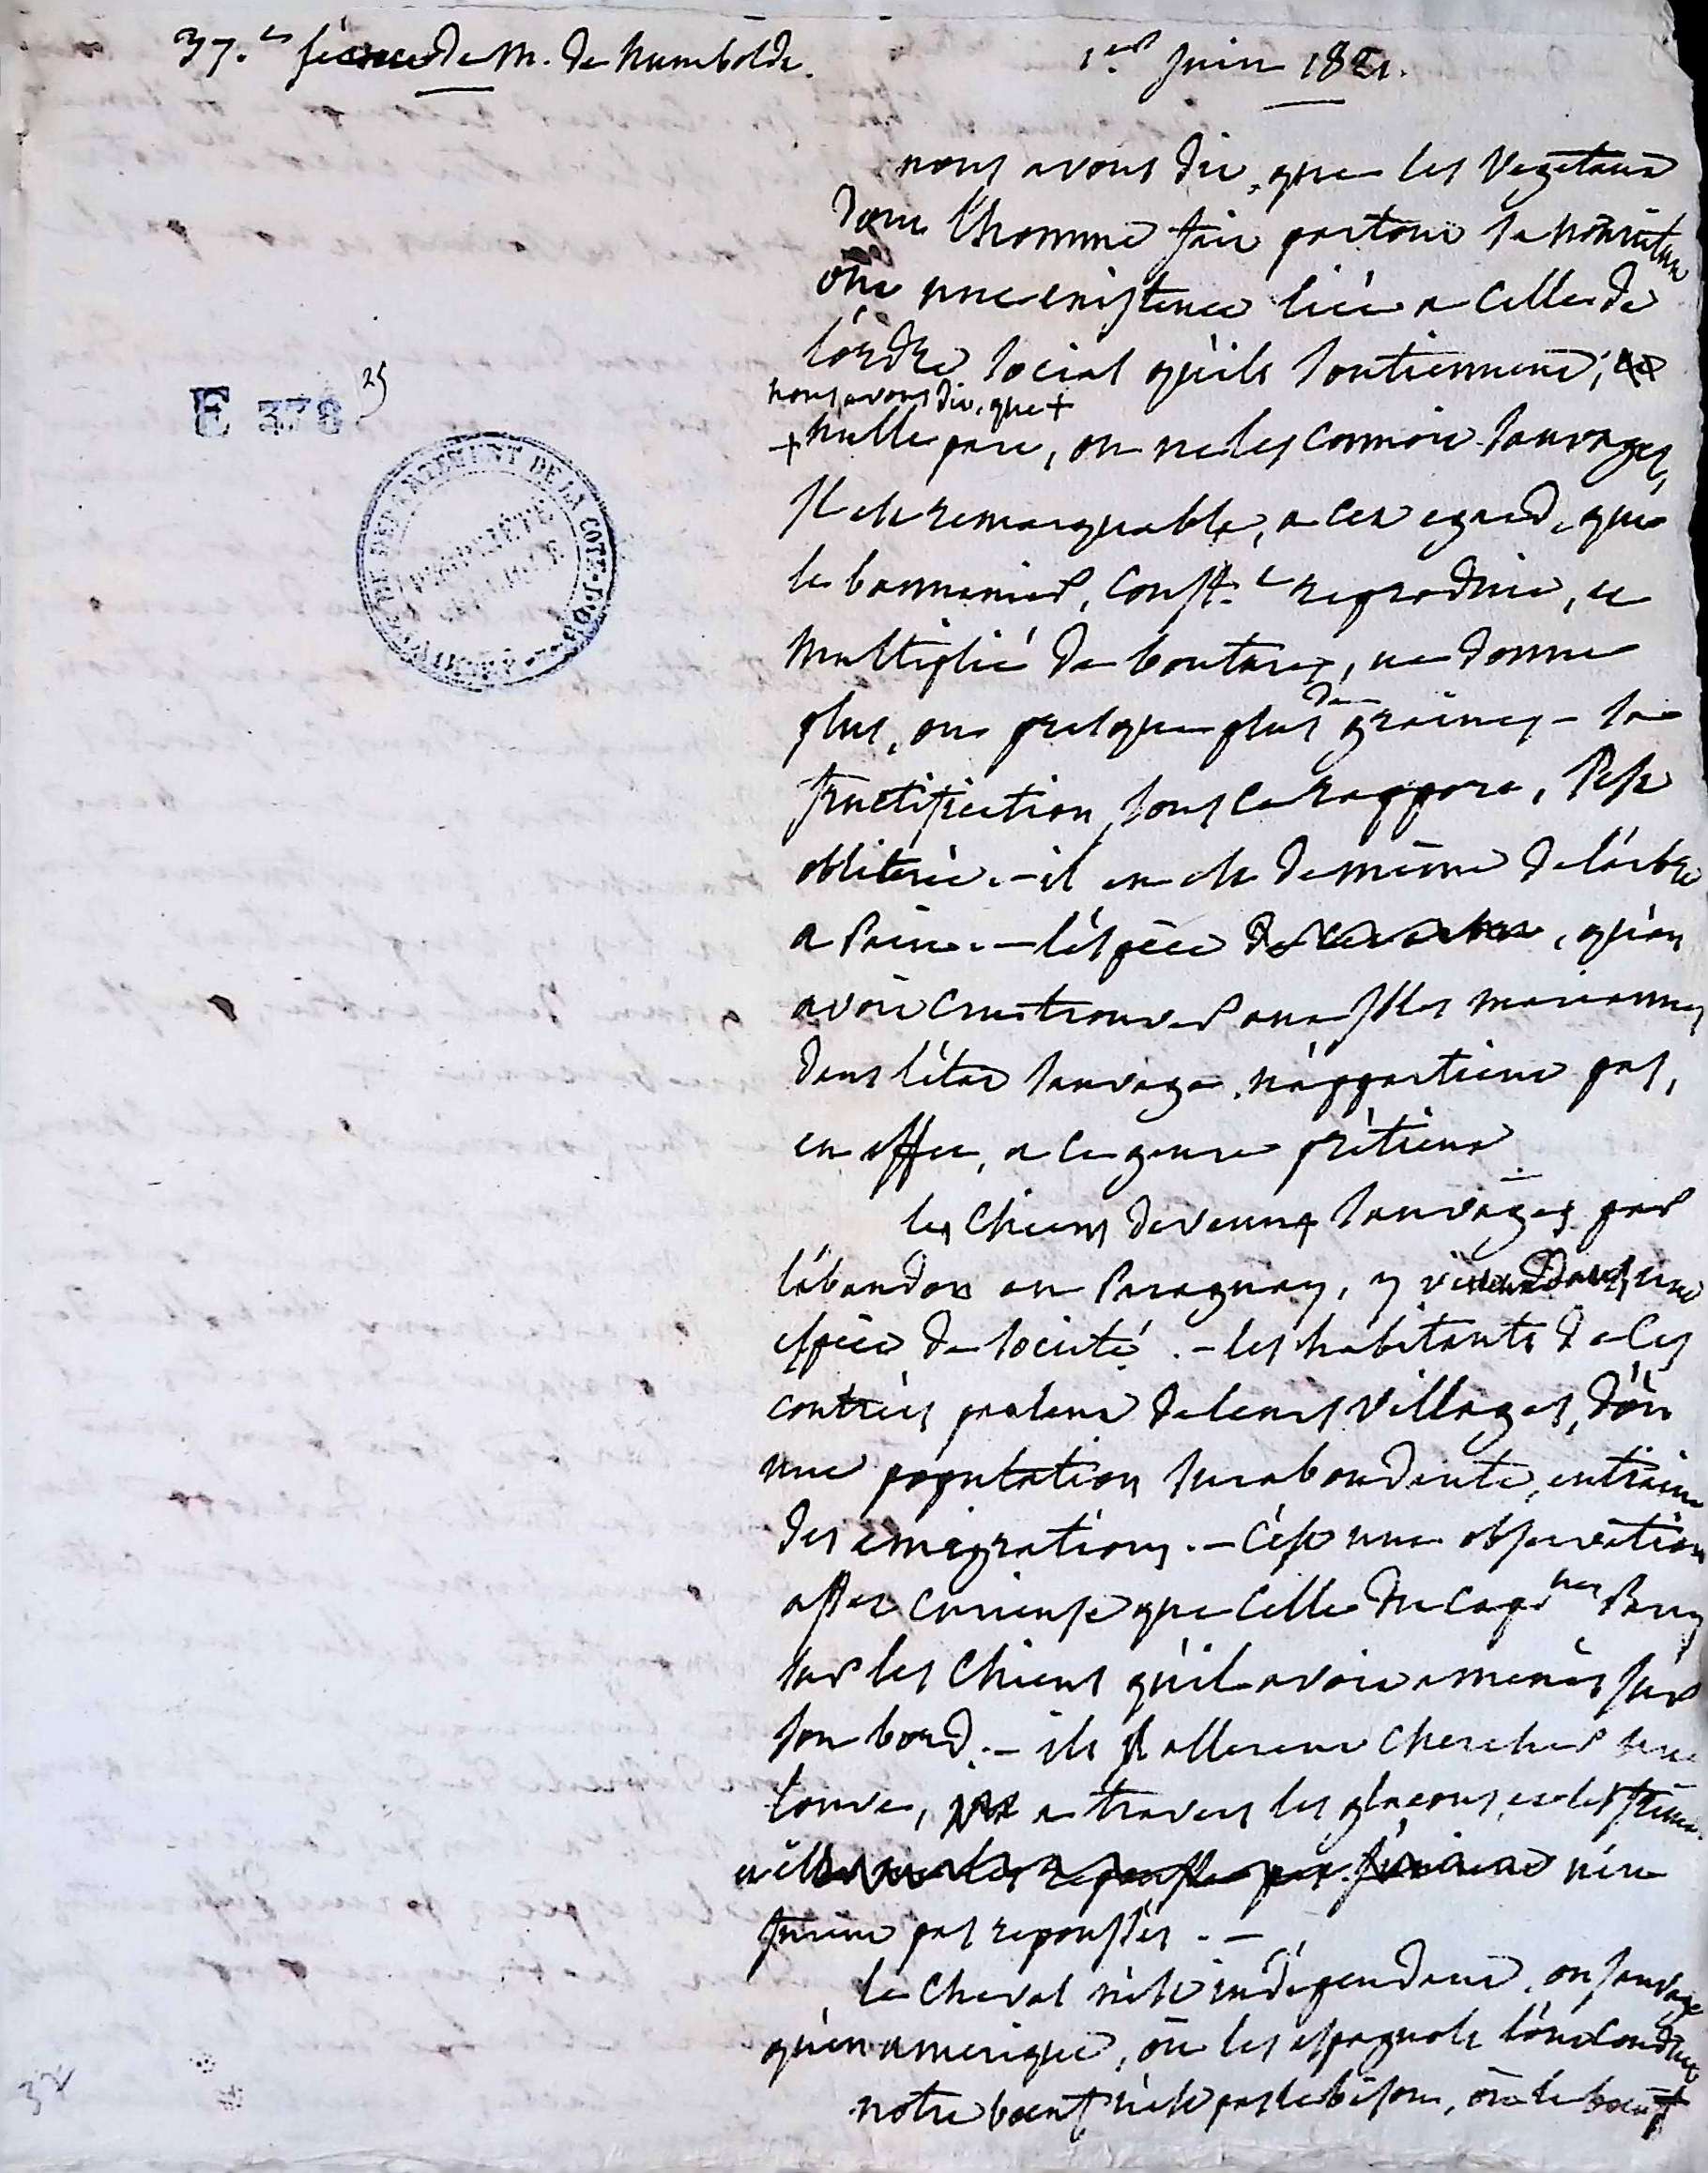 37.e séance de M. de humboldt.
1er juin 1821.
nous avons dit, que les vegetaux
dont l'homme fait partout sa nourriture
ont une existence liée a celle de
l'ordre social qu'ils soutiennent;
nous avons dit, que +
+ nulle part, on ne les connoit sauvages,
Il est remarquable, a cet egard, que
le bannanier, const.t reproduit, et
multiplié de boutures, ne donne
plus, ou presque plus de graines - sa
fructification, sous ce rapport, s'est
oblitérée. - il en est de même de l'arbre
a Pain. - l'espèce de cet arbre, qu'on
avoit cru trouver aux Isles mariannes
dans l'état sauvage, n'appartient pas,
en effet, a ce genre prétieux
les chiens devenus sauvages par
l'abandon au Paraguay, y vivent dans une
espèce de societé. - les habitants de ces
contrées parlent de leurs villages, d'où
une population surabondante, entraine
des emigrations. - c'est une observation
assez curieuse que celle du cap.ne Parry
sur les chiens qu'il avoit amenés sur
son bord. - ils allerent chercher une
louve, a travers les glaçons, et les
n'en
furent pas repoussés. -
le cheval n'est indépendant, ou sauvage
qu'en amerique, où les espagnols l'ont conduit
notre boeuf n'est pas le bison, ou le boeuf
E 378 25
ARCHIVES DU DÉPARTEMENT DE LA COTE-D'OR
PROPRIÉTÉ PUBLIQUE
32